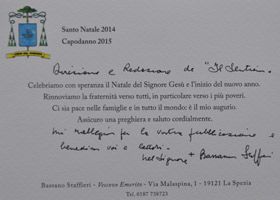 Santo Natale 2014
Capodanno 2015
Direzione e Redazione de "Il Sentiero"
Celebriamo con speranza il Natale del Signore Gesù e l'inizio del nuovo anno.
Rinnoviamo la fraternità verso tutti, in particolare verso i più poveri.
Ci sia pace nelle famiglie e in tutto il mondo: è il mio augurio.
Assicuro una preghiera e saluto cordialmente.
Mi rallegro per la vostra pubblicazione e
benedico voi e lettori.
nel Signore + Bassano Staffieri
Bassano Staffieri - Vescovo Emerito - Via Malaspina, 1 - 19121 La Spezia
Tel. 0187 739723